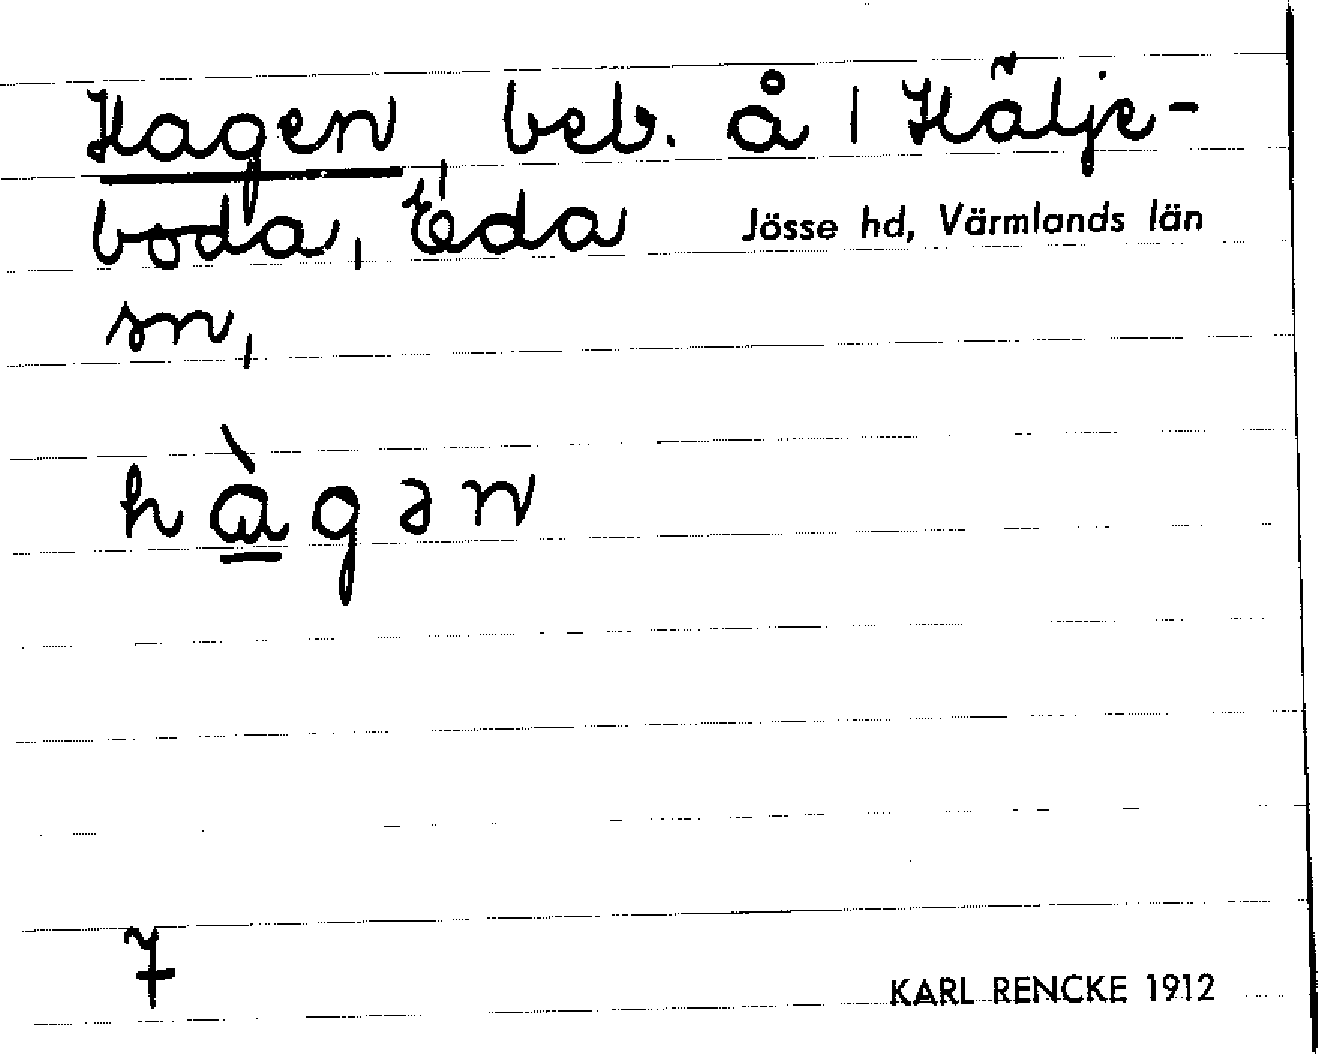 Hagen, beb. å 1 Hälje-
boda, Eda Jösse hd, Värmlands län
sn,
hàgən
7
KARL RENCKE 1912